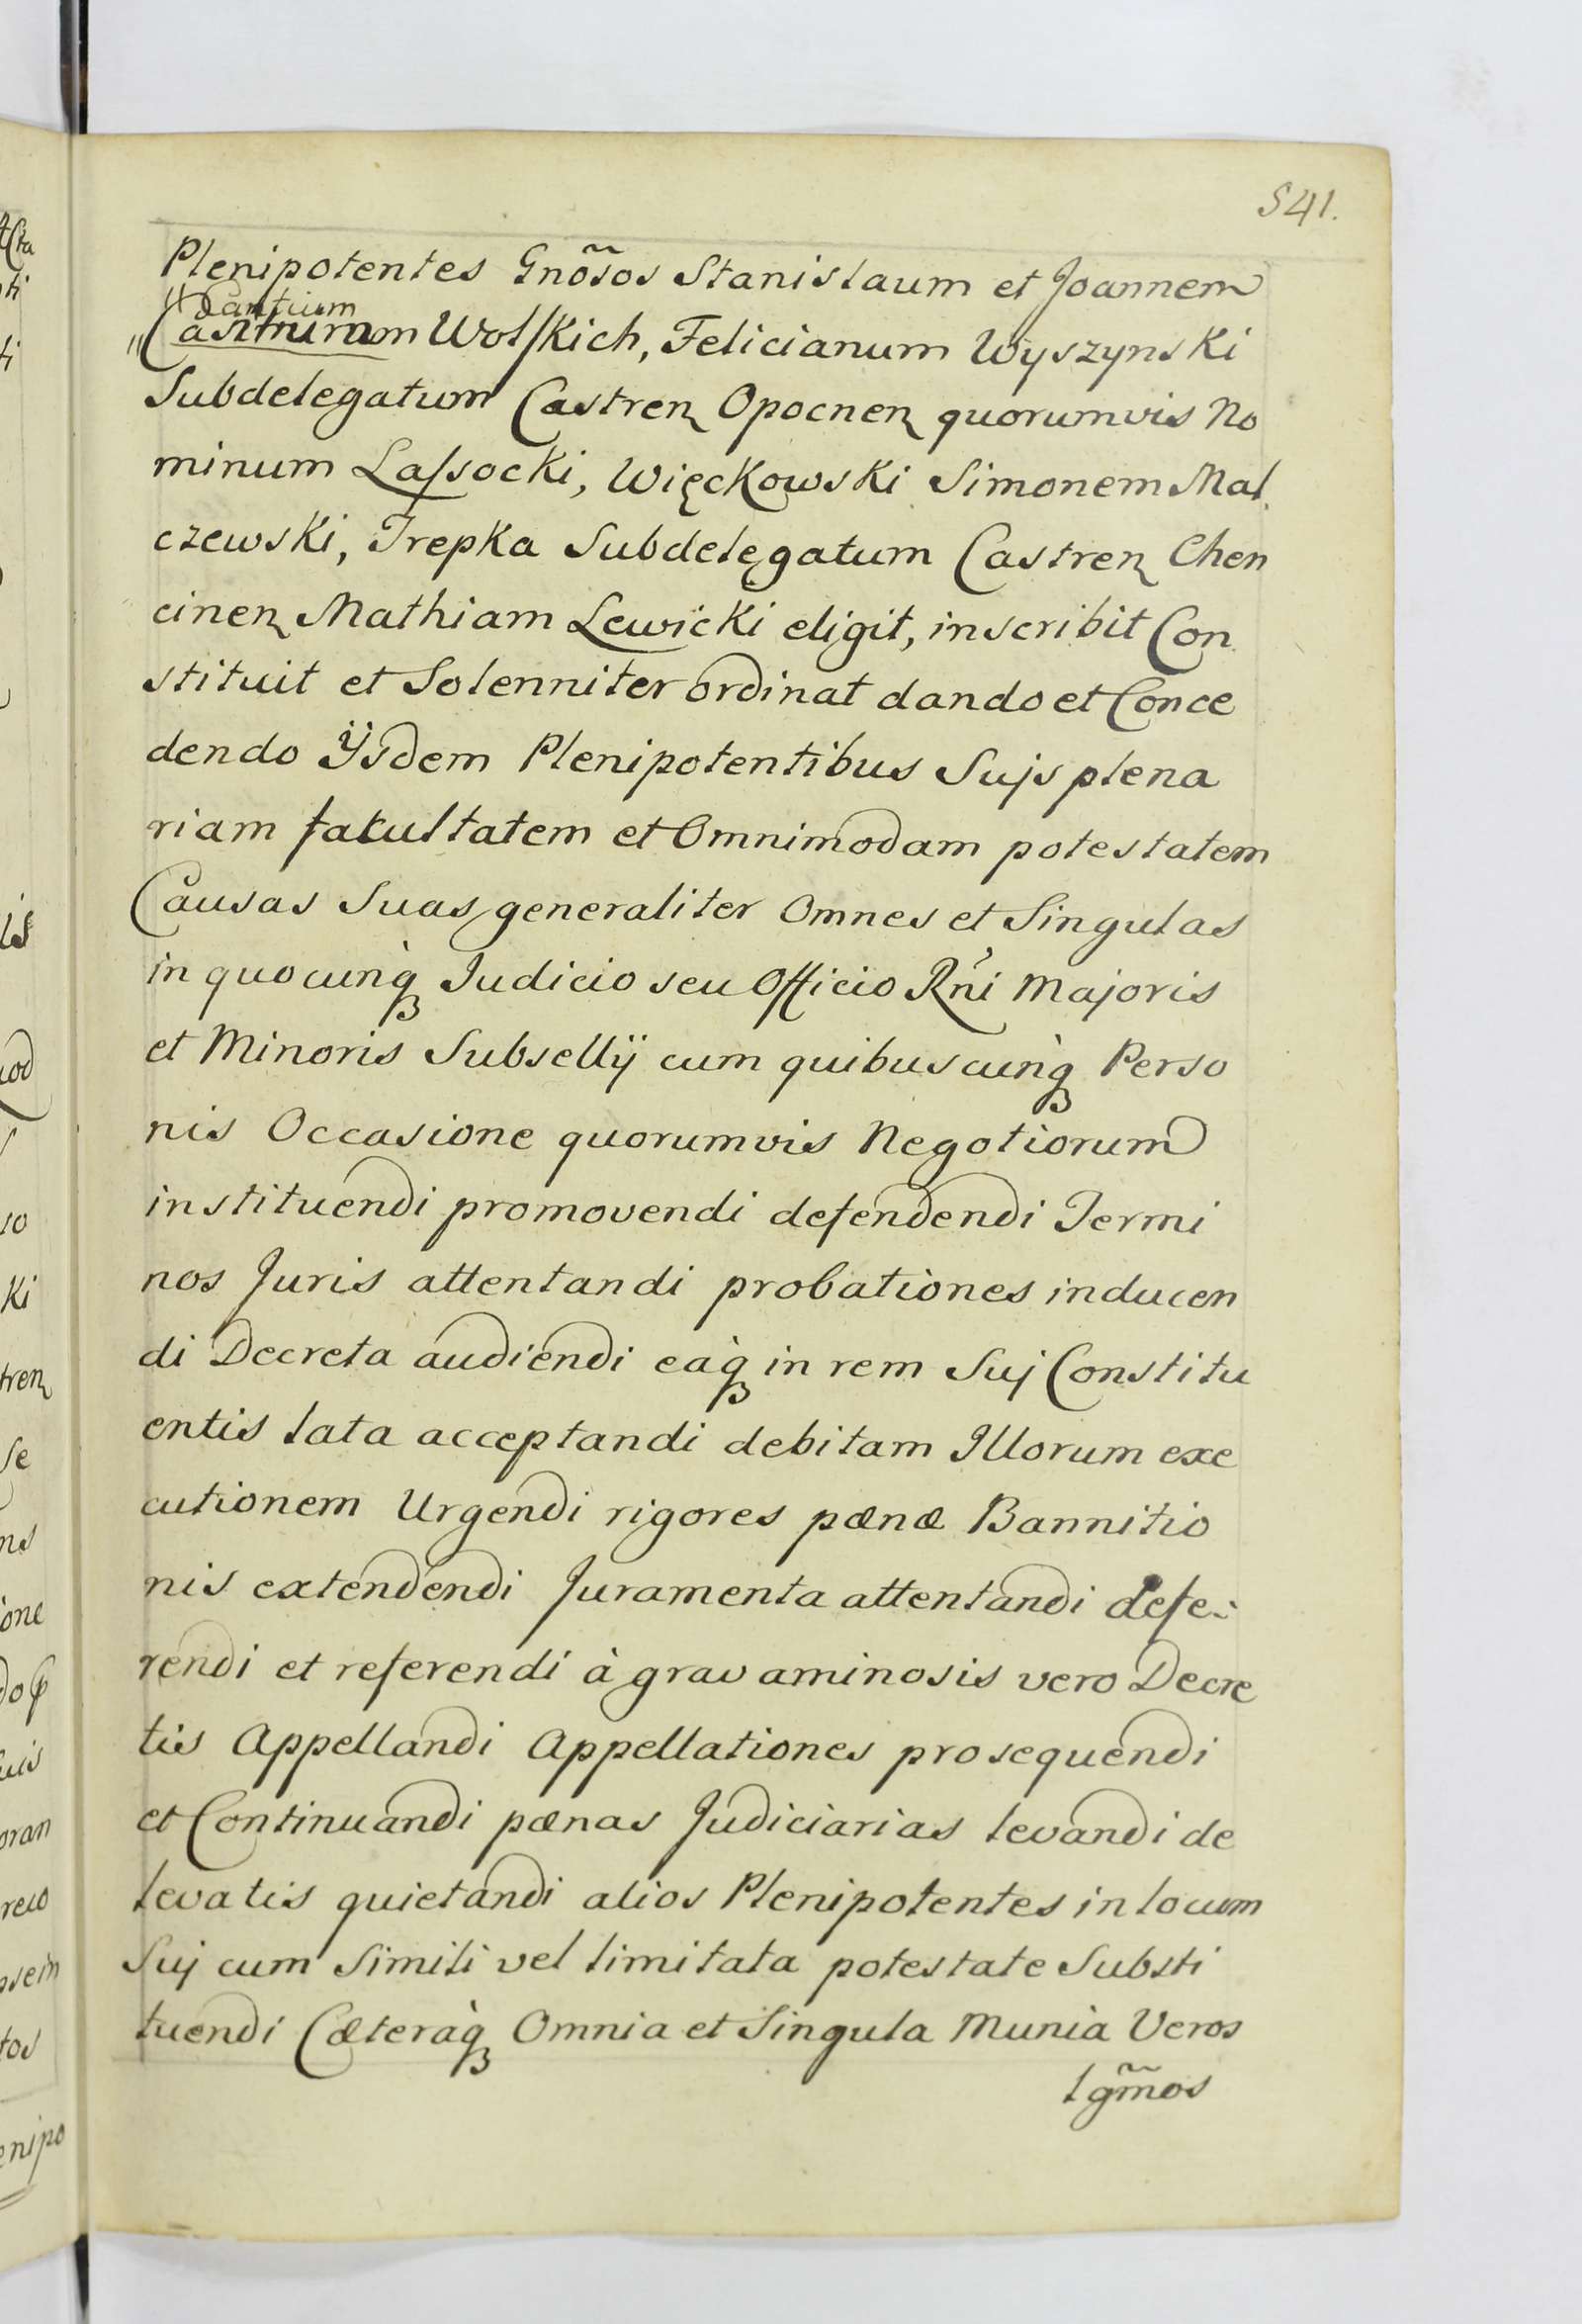 541.
Plenipotentes Gnõsos Stanislaum et Joannem
Cantium
Wolskich, Felicianum Wyszynski
Subdelegatum Castren Opocnen quorumvis No
minum Lassocki, Więckowski Simonem Mal
czewski, Trepka Subdelegatum Castren Chen
cinen Mathiam Lewicki eligit, inscribit Con
stituit et Solenniter ordinat dando et Conce
dendo Ÿsdem Plenipotentibus Sujs plena
riam facultatem et Omnimodam potestatem
Causas Suas generaliter Omnes et Singulas
in quocunq̀ Judicio seu Officio Rñi Majoris
et Minoris Subsellÿ cum quibuscunq̀ Perso
nis Occasione quorumvis Negotiorum
instituendi promovendi defendendi Termi
nos Juris attentandi probationes inducen
di Decreta audiendi eaq̀ in rem Suj Constitu
entis lata acceptandi debitam Illorum exe
cutionem Urgendi rigores pænæ Bannitio
nis extendendi Juramenta attentandi defe-
rendi et referendi à gravaminosis vero Decre
tis Appellandi Appellationes prosequendi
et Continuandi pænas Judiciarias levandi de
levatis quietandi alios Plenipotentes in locum
Suj cum Simili vel limitata potestate Substi
tuendi Cæteraq̀ Omnia et Singula Munia Veros
lgm̃os